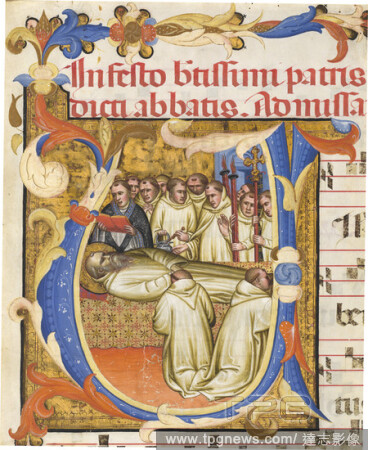 In festo b̄tissimi patris
dicti abbatis. Ad missa
www.tpgnews.com/達志影像